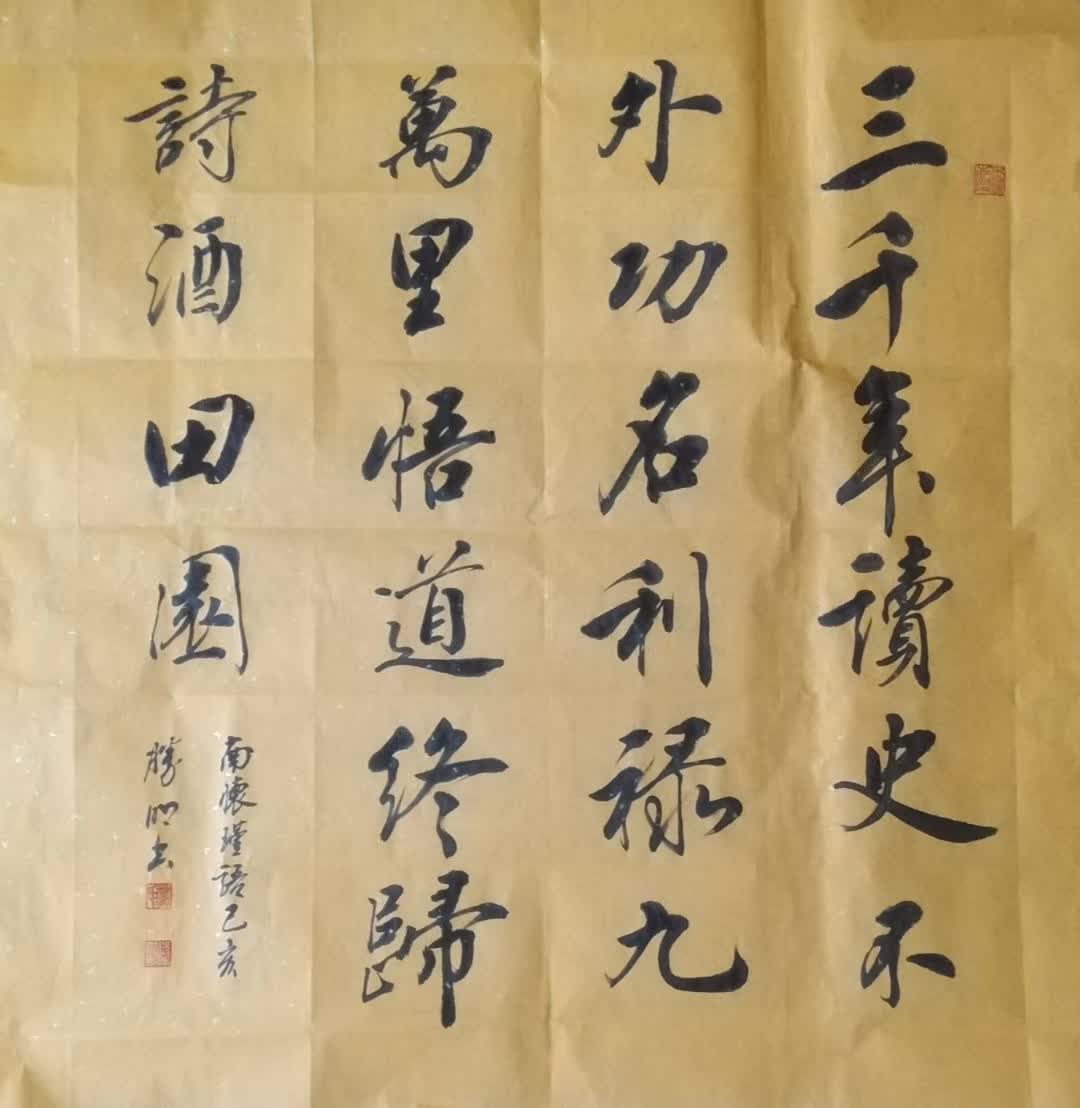 三千年讀史不
外功名利禄九
萬里悟道終歸
詩酒田園
南懷瑾語己亥
勝明书